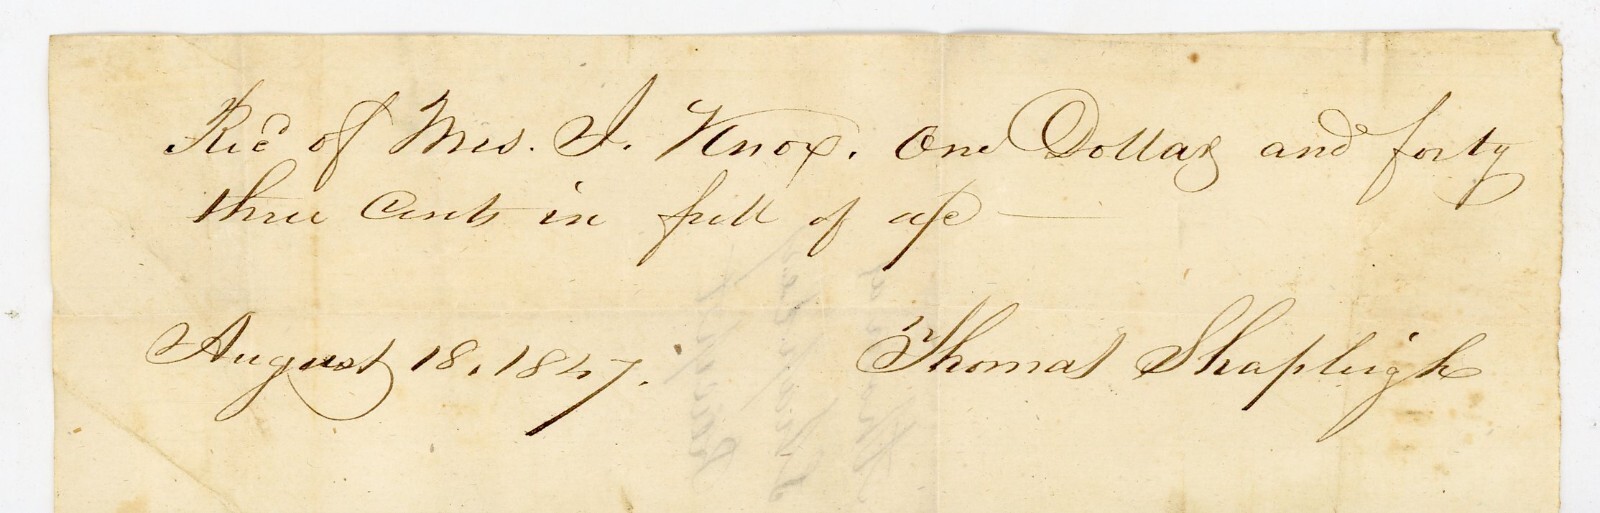 Rec'd of Mrs. J. Knox. One Dollar and forty
three Cents in full of a/c
August 18, 1847.
Thomas Shapleigh